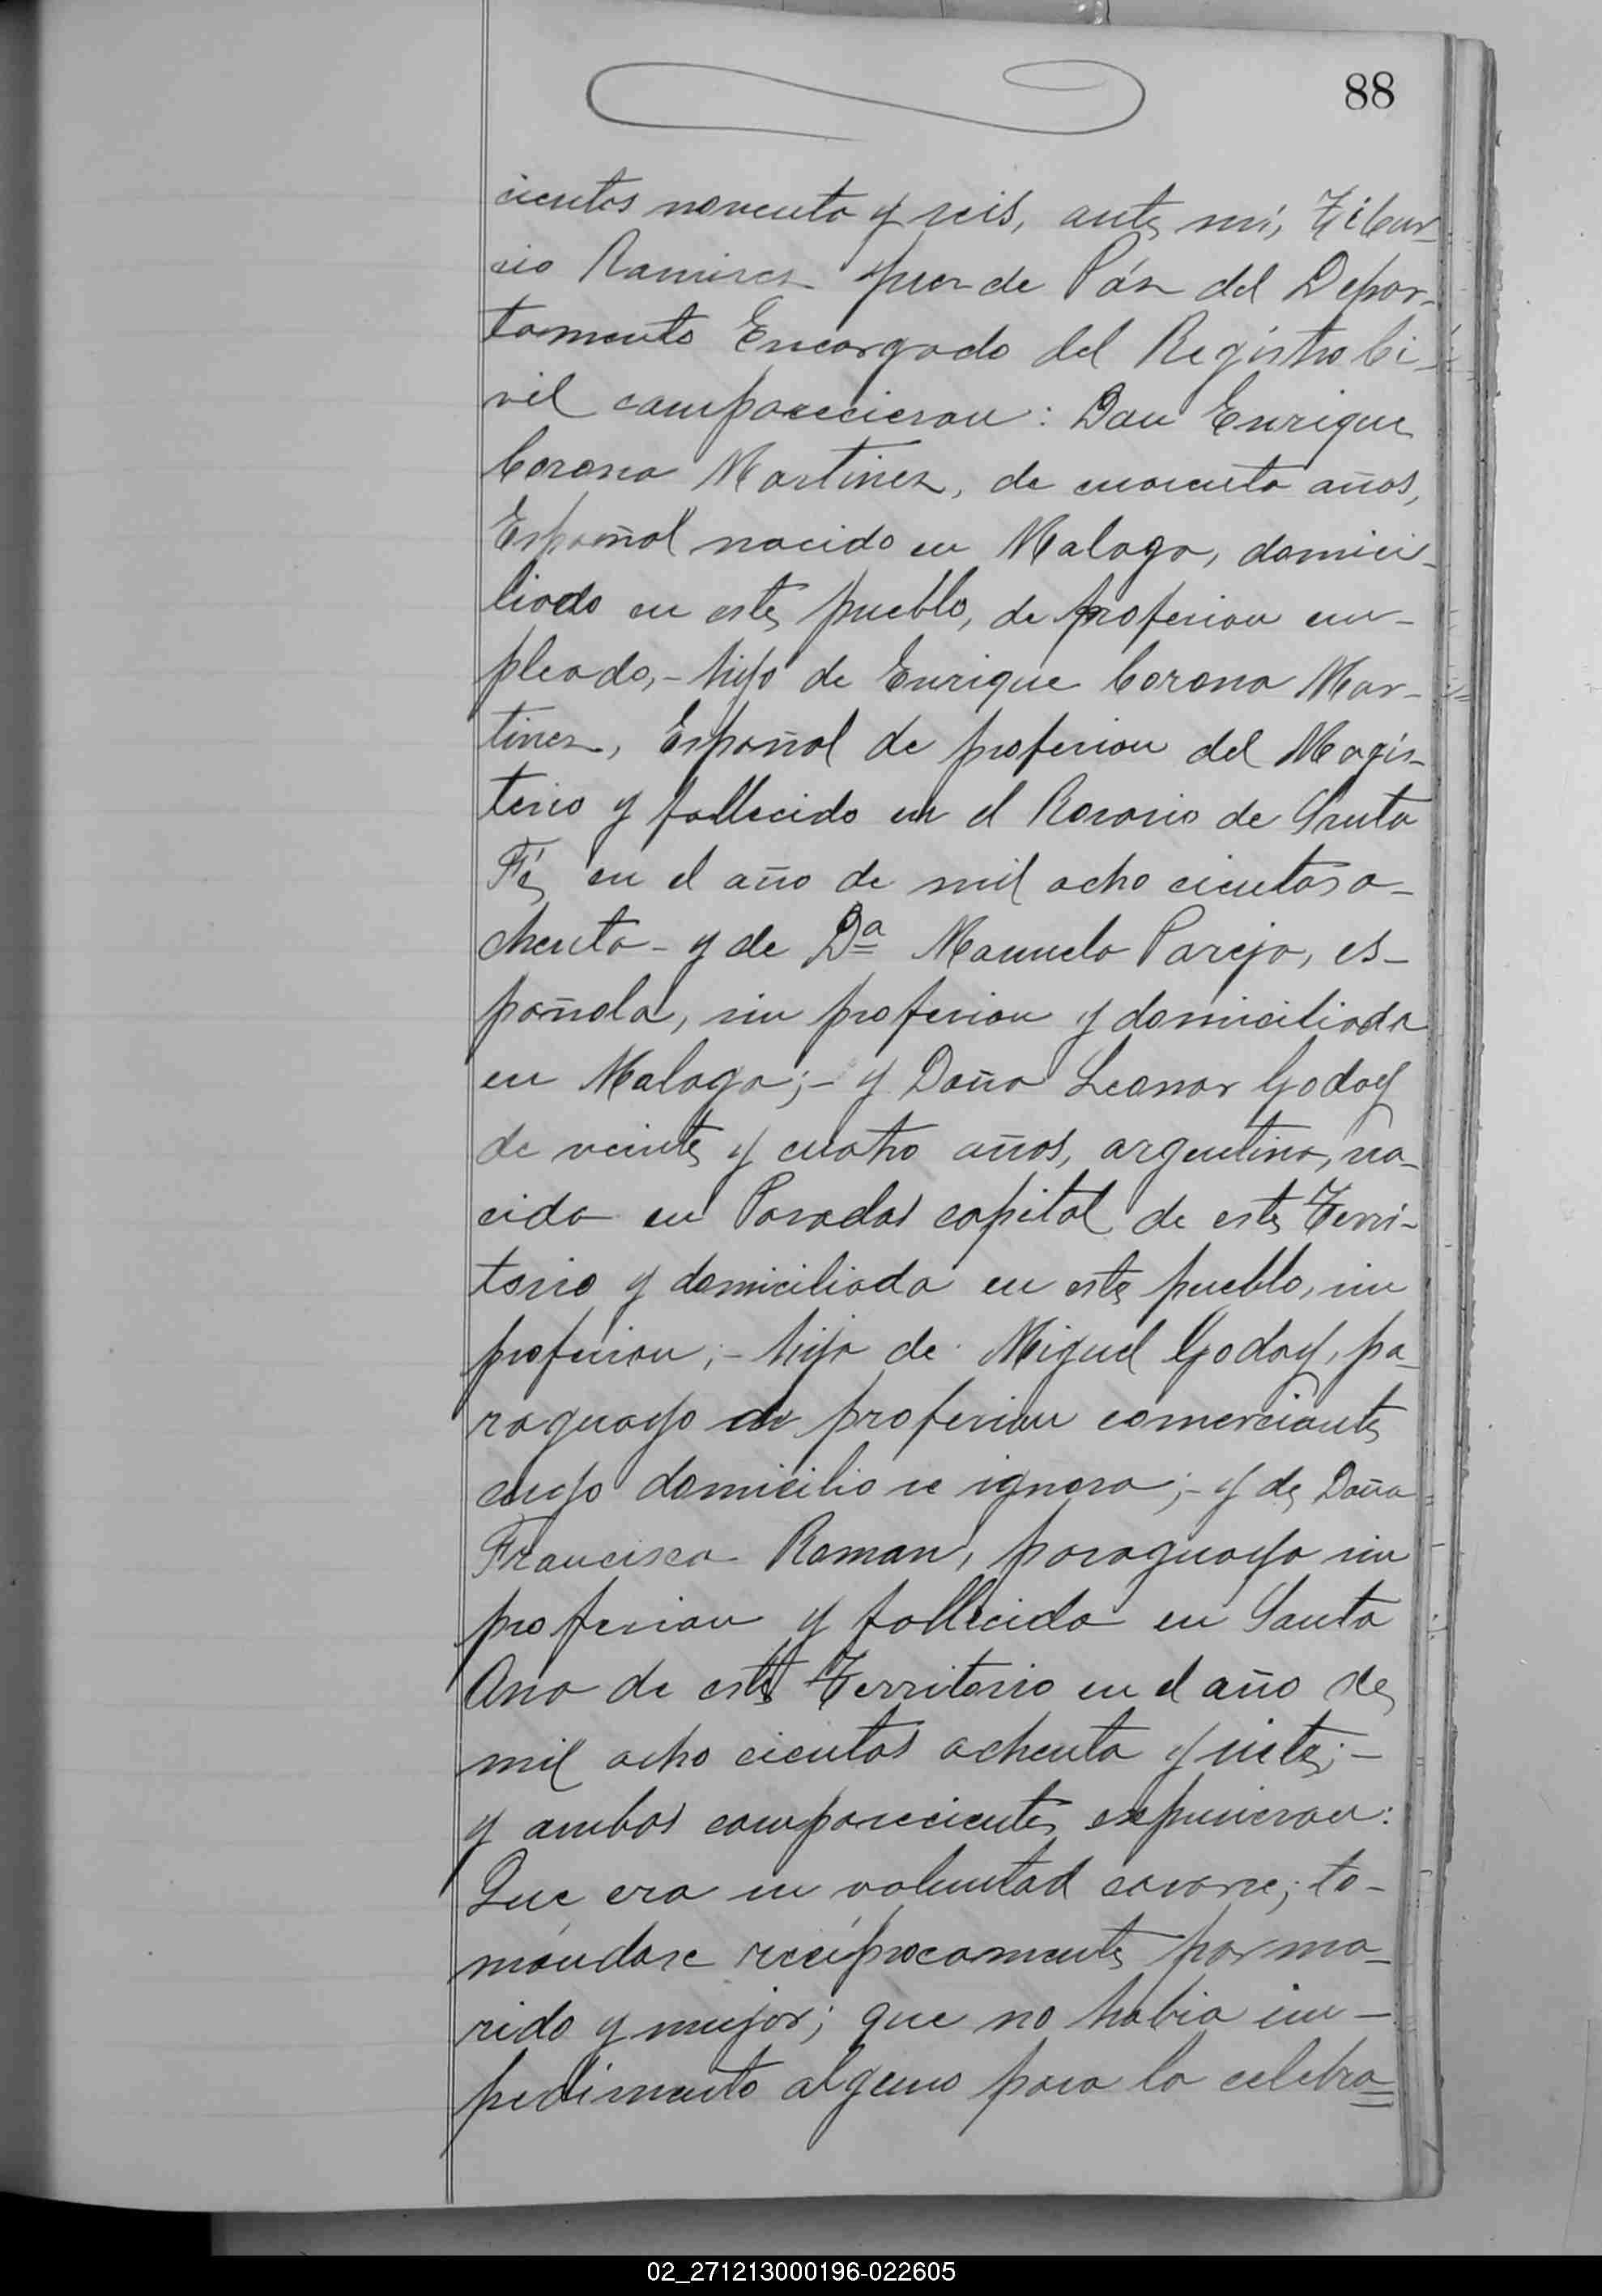 88
cientos noventa y seis, ante mí, Tibur-
cio Ramirez Juez de Páz del Depar-
tamento Encargado del Registro Ci-
vil comparecieron: Don Enrique
Corona Martinez, de cuarenta años,
Español nacido en Malaga, domici-
liado en este pueblo, de profesion em-
pleado,- hijo de Enrique Corona Mar-
tinez, Español de profesion del Magis-
terio y fallecido en el Rosario de Santa
Fé, en el año de mil ocho cientos o-
chenta - y de Dª Manuela Pareja, es-
pañola, sin profesion y domiciliada
en Malaga;- y Doña Leonor Godoy
de veinte y cuatro años, argentina, na-
cida en Posadas capital de este Terri-
torio y domiciliada en este pueblo, sin
profesion;- hija de Miguel Godoy, pa-
raguayo de profesion comerciante
cuyo domicilio se ignora;- y de Doña
Francisca Roman, paraguaya sin
profesion y fallecida en Santa
Ana de este Territorio en el año de
mil ocho cientos ochenta y siete;-
y ambos comparecientes expusieron:
Que era su voluntad casarse; to-
mándose recíprocamente por ma-
rido y mujer; que no habia im-
pedimento alguno para la celebra=
02_271213000196-022605